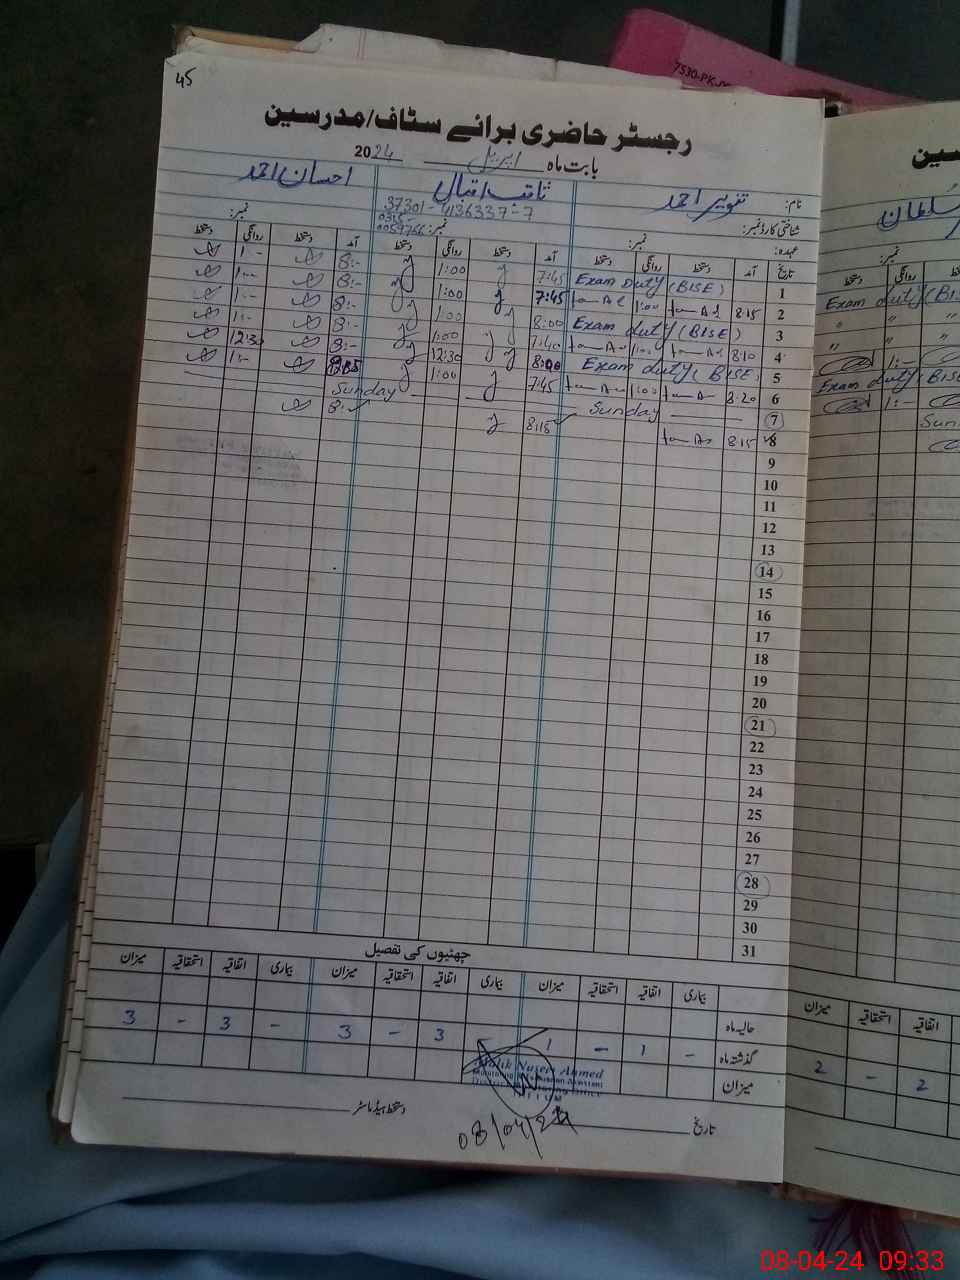 7530-PK
45
رجسٹر حاضری برائے سٹاف/مدرسین
بابت ماہ اپریل 2024
نام: تنویر احمد ثاقب اقبال احسان احمد
سلطان
شناختی کارڈ نمبر: 37301-4136337-7
0315-
نمبر: 0059766 نمبر: نمبر:
عہدہ:
تاریخ آمد دستخط روانگی دستخط آمد دستخط روانگی دستخط آمد دستخط روانگی دستخط
1 Exam Duty (BISE) 7:45 1:00 8:- 1:-
2 8:15 1:00 7:45 1:00 8:- 1:-
3 Exam duty (BISE) 8:00 1:00 8:- 1:-
4 8:10 1:00 7:40 1:00 8:- 1:-
5 Exam duty (BISE) 8:00 12:30 8:- 12:30
6 8:20 1:00 7:45 1:00 1:-
7 Sunday Sunday
8 8:15 8:15 8:-
9
10
11
12
13
14
15
16
17
18
19
20
21
22
23
24
25
26
27
28
29
30
31
Exam duty (BISE
" "
" "
1:-
Exam duty (BISE
1:-
Sun
چھٹیوں کی تفصیل
بیماری اتفاقیہ استحقاقیہ میزان بیماری اتفاقیہ استحقاقیہ میزان بیماری اتفاقیہ استحقاقیہ میزان
اتفاقیہ استحقاقیہ میزان
حالیہ ماہ
گذشتہ ماہ - 1 - 1 - 3 - 3 - 3 - 3
2 - 2
میزان
Malik Naseer Ahmed
Monitoring & Evaluation Assistant
JHELUM
تاریخ 08/04/24
دستخط ہیڈ ماسٹر
08-04-24 09:33